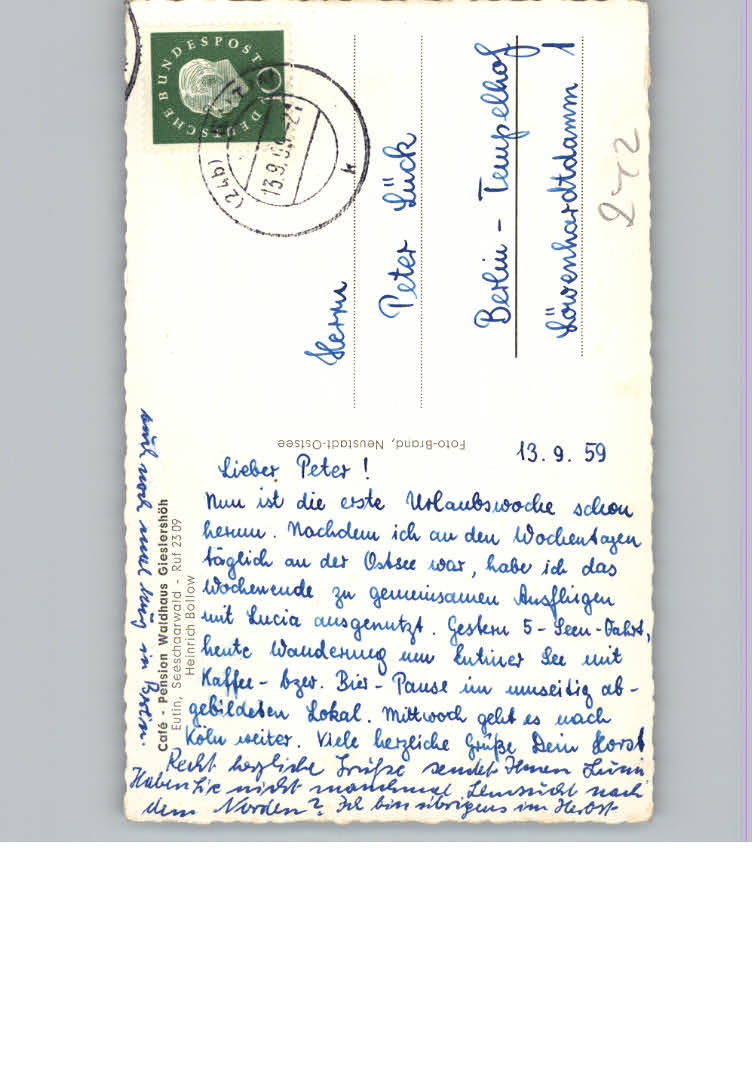 DEUTSCHE BUNDESPOST
(24b)
13.9.59.-21
k
Herrn
Peter Lück
Berlin - Tempelhof
Löwenhardtdamm 1
242
Foto-Brand, Neustadt-Ostsee
Café - Pension Waldhaus Gieslershöh
Eutin, Seeschaarwald - Ruf 23 09
Heinrich Bollow
13. 9. 59
Lieber Peter !
Nun ist die erste Urlaubswoche schon
herum. Nachdem ich an den Wochentagen
täglich an der Ostsee war, habe ich das
Wochenende zu gemeinsamen Ausflügen
mit Lucia ausgenutzt. Gestern 5-Seen-Fahrt,
heute Wanderung um Eutiner See mit
Kaffee- bzw. Bier-Pause im umseitig ab-
gebildeten Lokal. Mittwoch geht es nach
Köln weiter. Viele herzliche Grüße Dein Horst
Recht herzliche Grüße sendet Ihnen
Haben Sie nicht manchmal Sehnsucht nach
dem Norden? Ich bin übrigens im Herbst
auch noch mal kurz in Berlin.